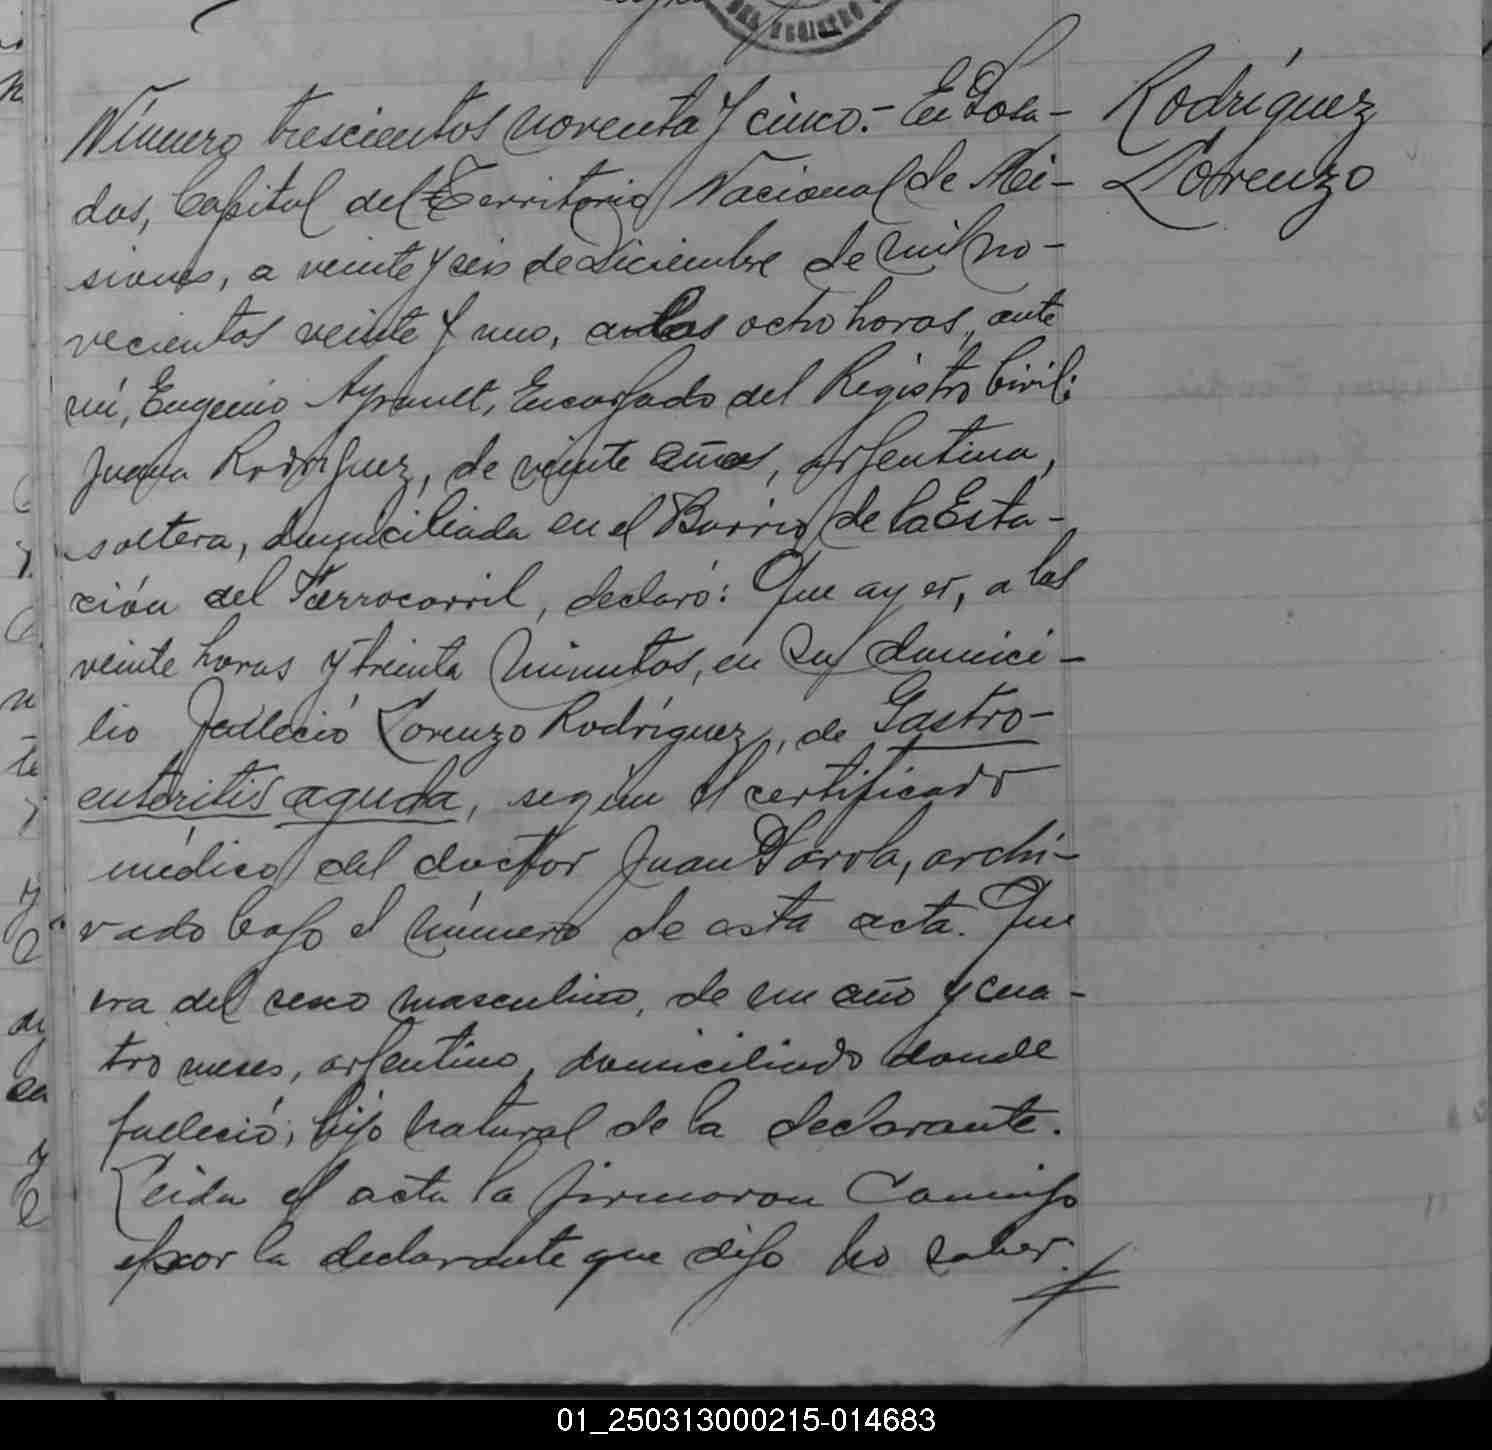 DEL REGISTRO
Número trescientos noventa y cinco.- En Posa-
das, Capital del Territorio Nacional de Mi-
siones, a veinte y seis de Diciembre de mil no-
vecientos veinte y uno, a las ocho horas, ante
mí, Eugenio Ayrault, Encargado del Registro Civil:
Juana Rodriguez, de veinte años, argentina,
soltera, domiciliada en el Barrio de la Esta-
ción del Ferrocarril, declaró: Que ayer, a las
veinte horas y treinta minutos, en su domici-
lio falleció Lorenzo Rodríguez, de Gastro-
enteritis aguda, según el certificado
médico del doctor Juan Parola, archi-
vado bajo el número de esta acta. Que
era del sexo masculino, de un año y cua-
tro meses, argentino, domiciliado donde
falleció; hijo natural de la declarante.
Leida el acta la firmaron Conmigo
por la declarante que dijo no saber.
Rodríguez
Lorenzo
01_250313000215-014683